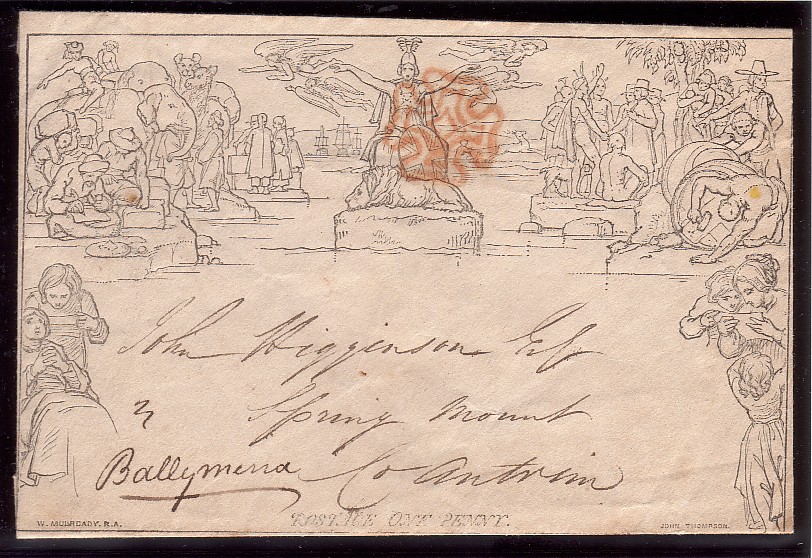 John Higginson Esq
Spring Mount
Ballymena Co Antrim
POSTAGE ONE PENNY.
W. MULREADY, R.A.
JOHN THOMPSON.